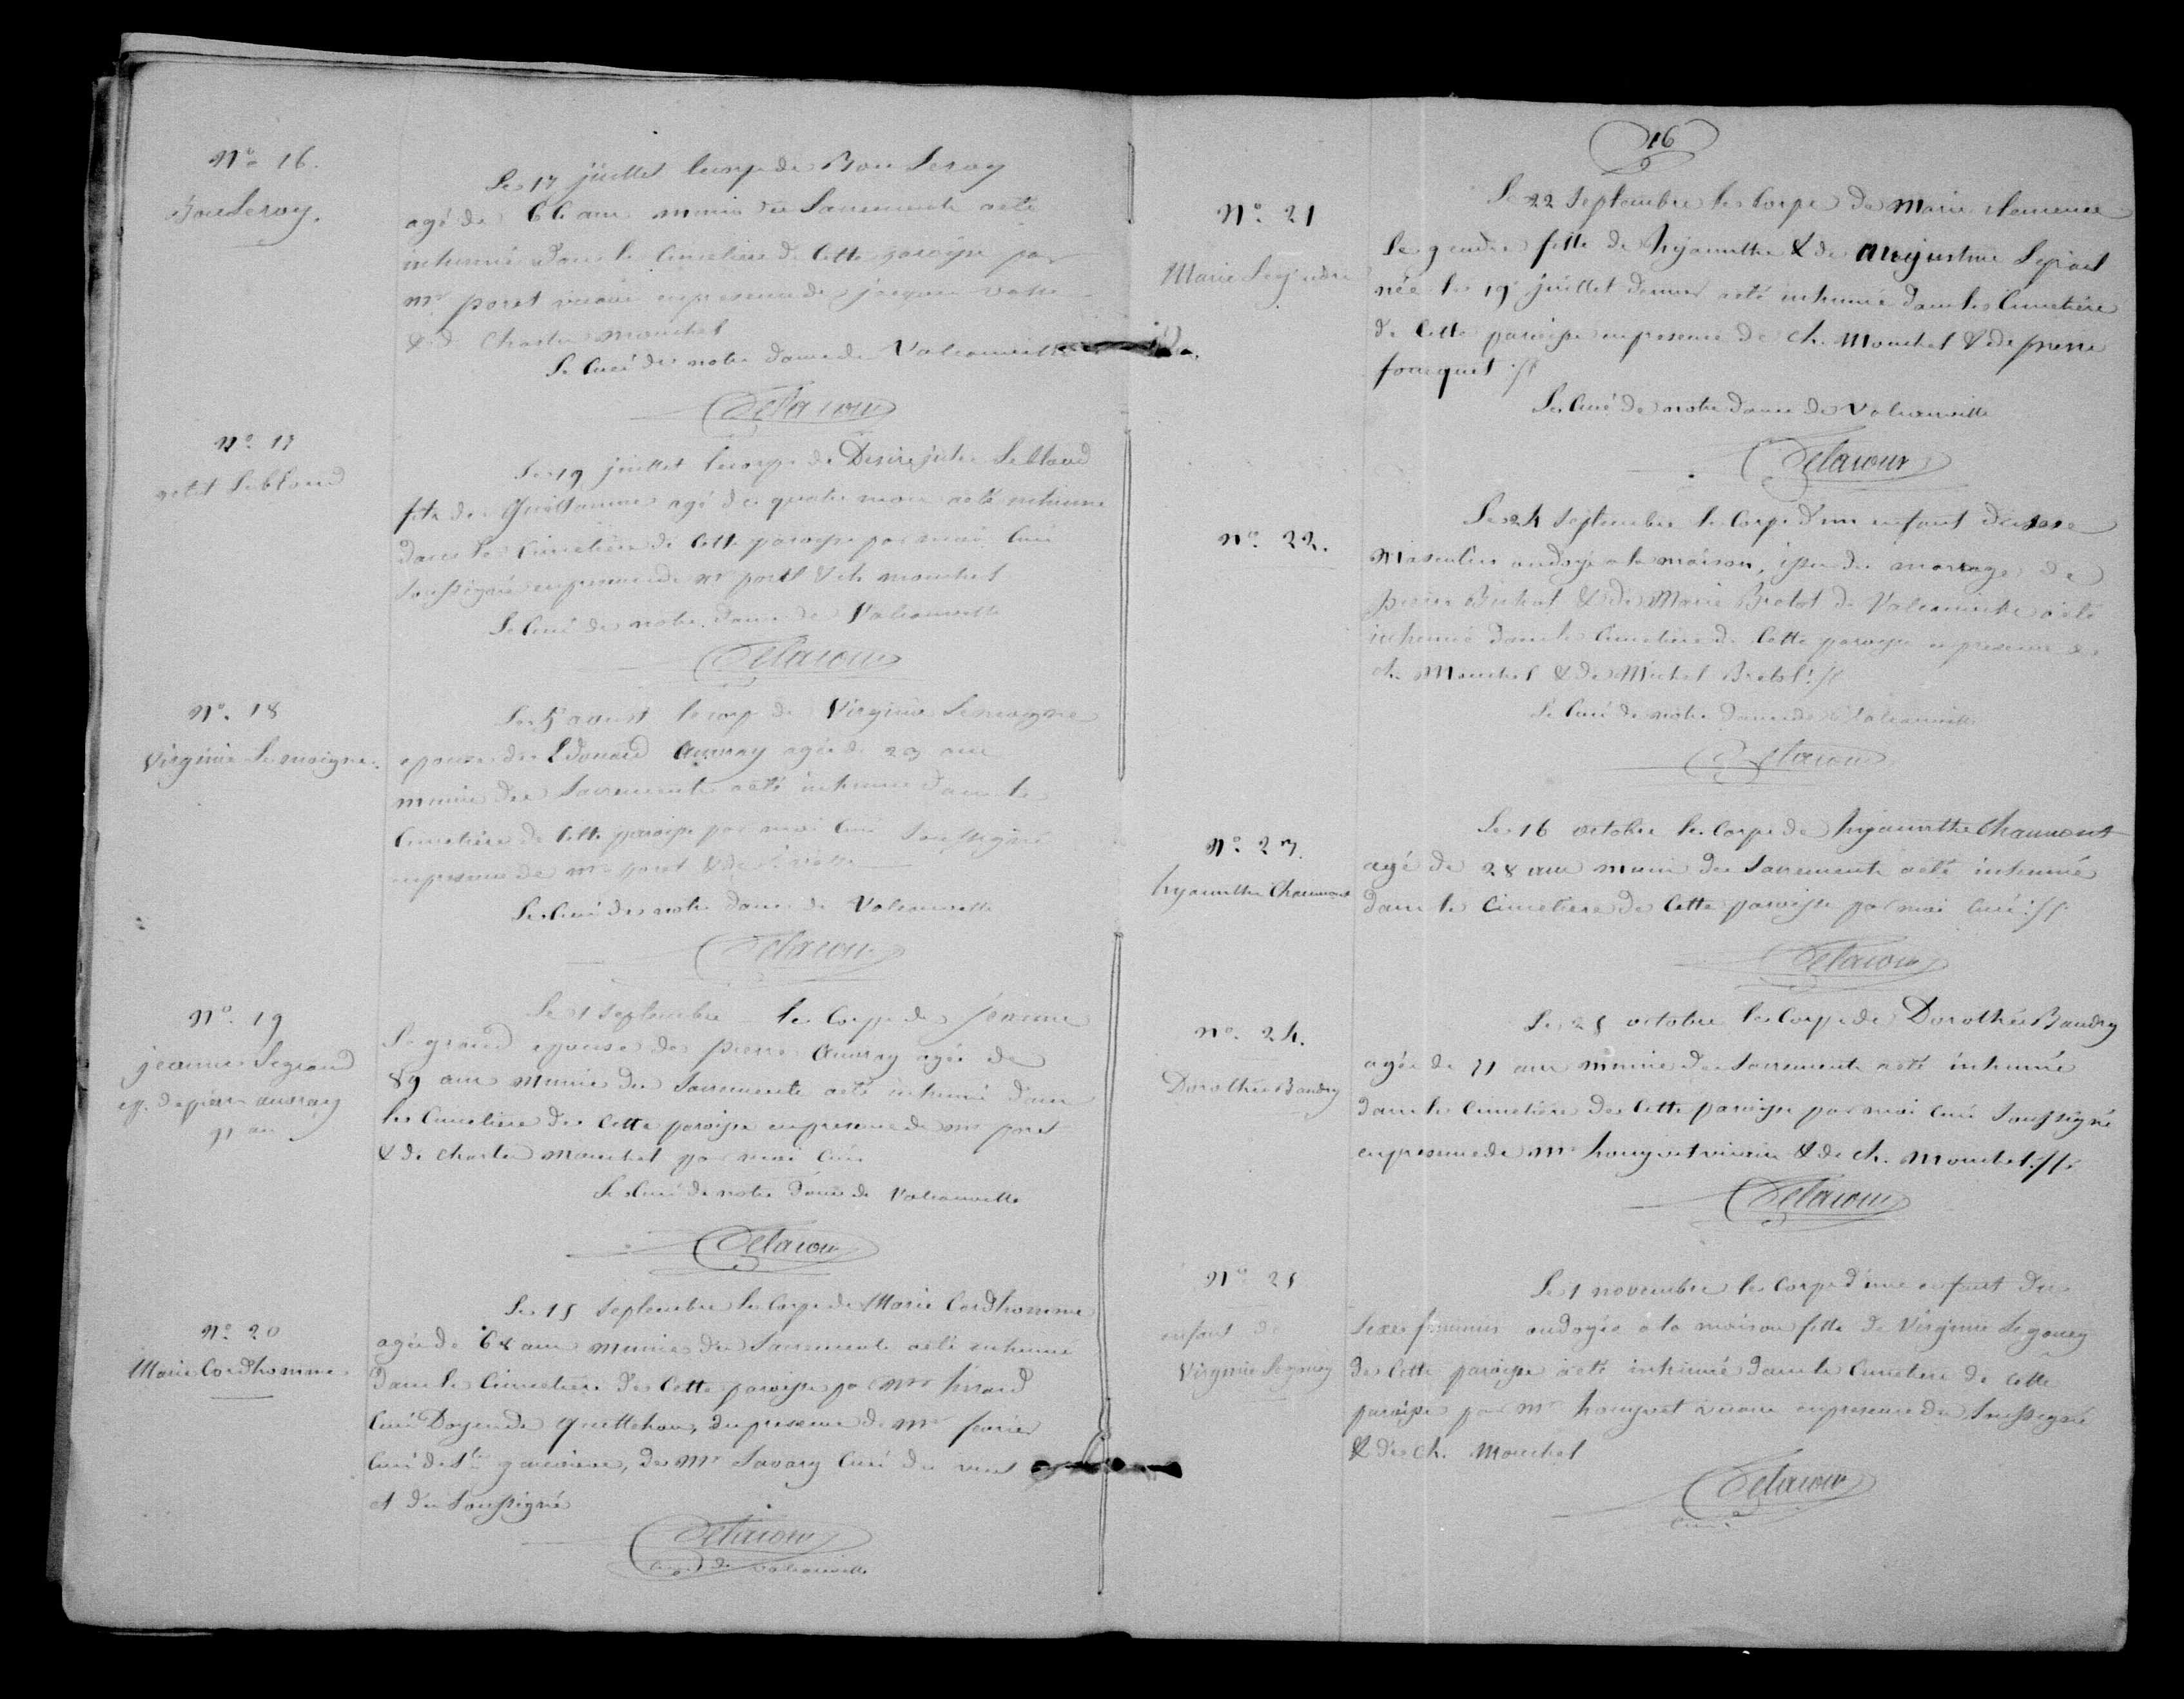 No 16.
Bon Leroy.
Le 17 juillet le corp de Bon Leroy
agé de 66 ans muni des Sacrements a été
inhumé dans le Cimetiere de Cette paroisse par
mr poret vicaire en presence de jacques
& de Charles Mouchel
Le Curé de notre dame de Valcanville
Delacour
No 17
petit Leblond
Le 19 juillet le corp de Desiré jules Leblond
fils de Guillaume agé de quatre mois a été inhumé
dans le Cimetière de Cette paroisse par moi Curé
Soussigné en presence de mr poret & ch mouchel
Le Curé de notre dame de Valcanville
Delacour
No. 18
Virginie Lemoigne.
Le 5 aoust le corp de Virginie Lemoigne
epouse de Edouard Auvray agée de 23 ans
munie des Sacrements a été inhumée dans le
Cimetière de Cette paroisse par moi Curé Soussigné
en presence de mr poret & de
Le Curé de notre dame de Valcanville
Delacour
No. 19
jeanne Legrand
ep. de pierre auvray
91 an
Le 1 Septembre le Corps de jeanne
Le grand epouse de pierre Auvray agée de
89 ans Munie des Sacrements a été inhumé dans
le Cimetiere de Cette paroisse en presence de mr poret
& de charles Mouchel par moi Curé
Le Curé de notre dame de Valcanville
Delacour
No 20
Marie Cordhomme
Le 15 Septembre le Corps de Marie Cordhomme
agée de 68 ans Munie des Sacrements a été inhumée
dans le Cimetiere de Cette paroisse par Mr
Curé Doyen de Quettehou, en presence de Mr
Curé de Ste genevieve, de Mr Savary Curé du vast
et du Soussigné
Delacour
Curé de Valcanville
16
No. 21
Marie Legendre
Le 22 Septembre le Corps de Marie clemence
Le gendre fille de hyacinthe & de Augustine
née le 19 juillet dernier a été inhumée dans le Cimetière
de Cette paroisse en presence de ch. Mouchel & de pierre
fouquet ./.
Le Curé de notre dame de Valcanville
Delacour
No. 22.
Le 24 Septembre le Corps d'un enfant du sexe
Masculin ondoyé a la maison, issu du mariage de
pierre & de Marie Bretot de Valcanville a été
inhumé dans le Cimetiere de Cette paroisse en presence de
ch. Mouchel & de Michel Bretot ./.
Le Curé de notre Dame de Valcanville
Delacour
No. 23.
hyacinthe Chaumont
Le 16 octobre le Corps de hyacinthe Chaumont
agé de 28 ans muni des Sacrements a été inhumé
dans le Cimetiere de Cette paroisse par moi Curé ./.
Delacour
No. 24.
Dorothée Baudry
Le 25 octobre le Corps de Dorothée Baudry
agée de 71 ans munie des Sacrements a été inhumée
dans le Cimetière de Cette paroisse par moi Curé Soussigné
en presence de Mr houyvet vicaire & de ch. Mouchel ./.
Delacour
No 25
enfant de
Virginie Legoney
Le 1 novembre le Corps d'une enfant du
Sexe feminin ondoyée a la maison fille de Virginie Legoney
de Cette paroisse a été inhumé dans le Cimetiere de cette
paroisse par Mr houyvet vicaire en presence du Soussigné
& de ch. Mouchel
Delacour
Curé